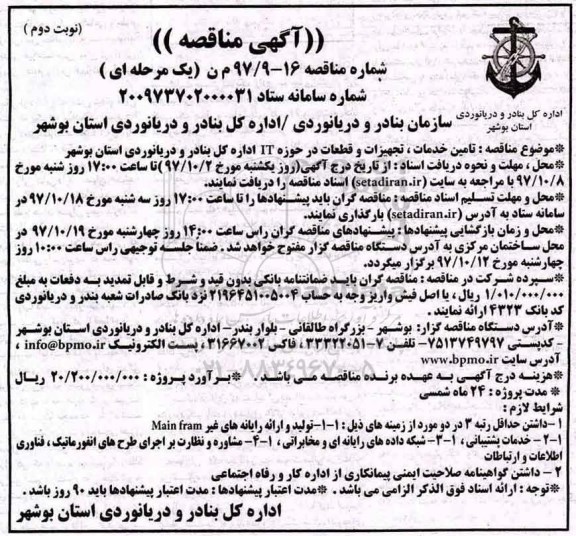 (نوبت دوم)
((آگهی مناقصه))
شماره مناقصه ۱۶-۹۷/۹ م ن (یک مرحله ای)
شماره سامانه ستاد ۲۰۰۹۷۳۷۰۲۰۰۰۰۳۱
اداره کل بنادر و دریانوردی
استان بوشهر
سازمان بنادر و دریانوردی /اداره کل بنادر و دریانوردی استان بوشهر
*موضوع مناقصه : تامین خدمات ، تجهیزات و قطعات در حوزه IT اداره کل بنادر و دریانوردی استان بوشهر
*محل ، مهلت و نحوه دریافت اسناد : از تاریخ درج آگهی(روز یکشنبه مورخ ۹۷/۱۰/۲ )تا ساعت ۱۷:۰۰ روز شنبه مورخ
۹۷/۱۰/۸ با مراجعه به سایت (setadiran.ir) اسناد مناقصه را دریافت نمایند.
*محل و مهلت تسلیم اسناد مناقصه : مناقصه گران باید پیشنهادها را تا ساعت ۱۷:۰۰ روز سه شنبه مورخ ۹۷/۱۰/۱۸ در
سامانه ستاد به آدرس (setadiran.ir) بارگذاری نمایند.
*محل و زمان بازگشایی پیشنهادها : پیشنهادهای مناقصه گران راس ساعت ۱۴:۰۰ روز چهارشنبه مورخ ۹۷/۱۰/۱۹ در
محل ساختمان مرکزی به آدرس دستگاه مناقصه گزار مفتوح خواهد شد . ضمنا جلسه توجیهی راس ساعت ۱۰:۰۰ روز
چهارشنبه مورخ ۹۷/۱۰/۱۲ برگزار میگردد.
*سپرده شرکت در مناقصه : مناقصه گران باید ضمانتنامه بانکی بدون قید و شرط و قابل تمدید به دفعات به مبلغ
۱/۰۱۰/۰۰۰/۰۰۰ ریال ، یا اصل فیش واریز وجه به حساب ۲۱۹۶۴۵۱۰۰۵۰۰۴ نزد بانک صادرات شعبه بندر و دریانوردی
کد بانک ۴۳۲۳ ارائه نمایند .
*آدرس دستگاه مناقصه گزار: بوشهر - بزرگراه طالقانی - بلوار بندر- اداره کل بنادر و دریانوردی استان بوشهر
- کدپستی ۷۵۱۳۷۴۹۷۹۷- تلفن ۷-۳۳۳۲۲۰۵۱ ، فاکس ۳۱۶۶۷۰۰۲ ، پست الکترونیک info@bpmo.ir ،
آدرس سایت www.bpmo.ir
*هزینه درج آگهی به عهده برنده مناقصه می باشد . *برآورد پروژه : ۲۰/۲۰۰/۰۰۰/۰۰۰ ریال
*مدت پروژه : ۲۴ ماه شمسی
شرایط لازم :
۱-داشتن حداقل رتبه ۳ در دو مورد از زمینه های ذیل : ۱-۱-تولید و ارائه رایانه های غیر Main fram
۲-۱ - خدمات پشتیبانی ، ۳-۱- شبکه داده های رایانه ای و مخابراتی ، ۴-۱- مشاوره و نظارت بر اجرای طرح های انفورماتیک ، فناوری
اطلاعات و ارتباطات
۲ - داشتن گواهینامه صلاحیت ایمنی پیمانکاری از اداره کار و رفاه اجتماعی
*توجه : ارائه اسناد فوق الذکر الزامی می باشد . *مدت اعتبار پیشنهادها : مدت اعتبار پیشنهادها باید ۹۰ روز باشد .
اداره کل بنادر و دریانوردی استان بوشهر